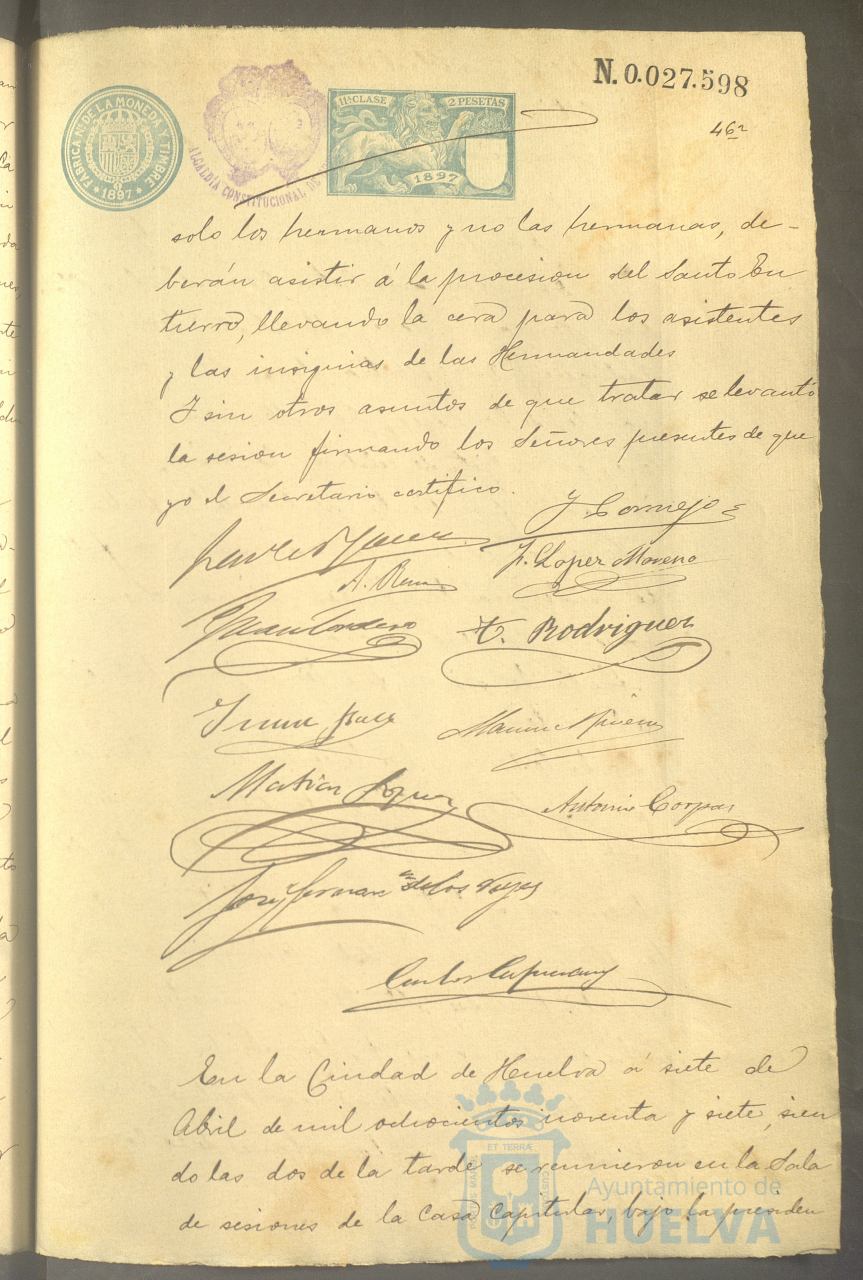 FABRICA NL. DE LA MONEDA Y TIMBRE
* 1897 *
ALCALDÍA CONSTITUCIONAL DE
11ª CLASE 2 PESETAS
1897
N. 0.027.598
46
solo los hermanos y no las hermanas, de-
berán asistir á la procesion del Santo En
tierro, llevando la cera para los asistentes
y las insignias de las Hermandades
Y sin otros asuntos de que tratar se levantó
la sesion firmando los Señores presentes de que
yo el Secretario certifico.
J. Cornejo
F. Lopez Moreno
Juan Cordero
T. Rodriguez
Matias Lopez
Antonio Corpas
En la Ciudad de Huelva á siete de
Abril de mil ochocientos noventa y siete, sien
do las dos de la tarde se reunieron en la Sala
de sesiones de la Casa Capitular, bajo la presiden
ET TERRÆ
Ayuntamiento de
HUELVA